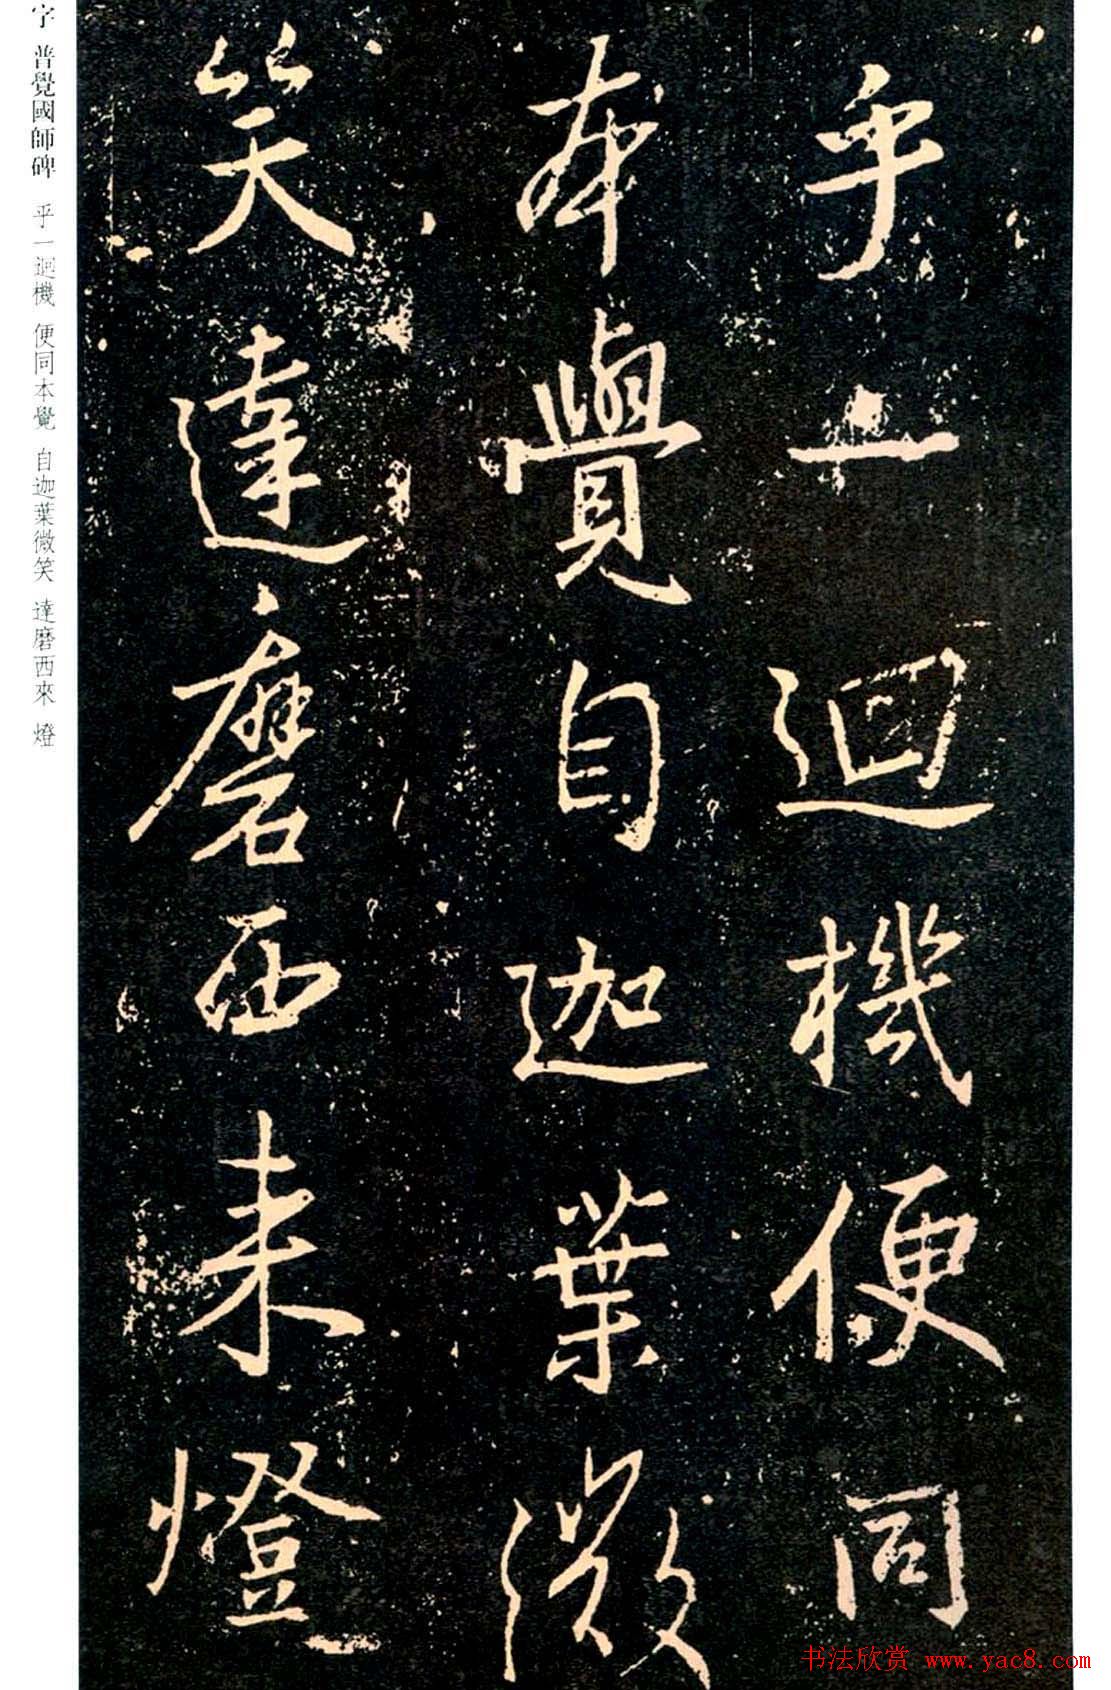 乎一迴機便同
本覺自迦葉微
笑達磨西来燈
字 普覺國師碑 乎一迴機 便同本覺 自迦葉微笑 達磨西來 燈
书法欣赏 www.yac8.com